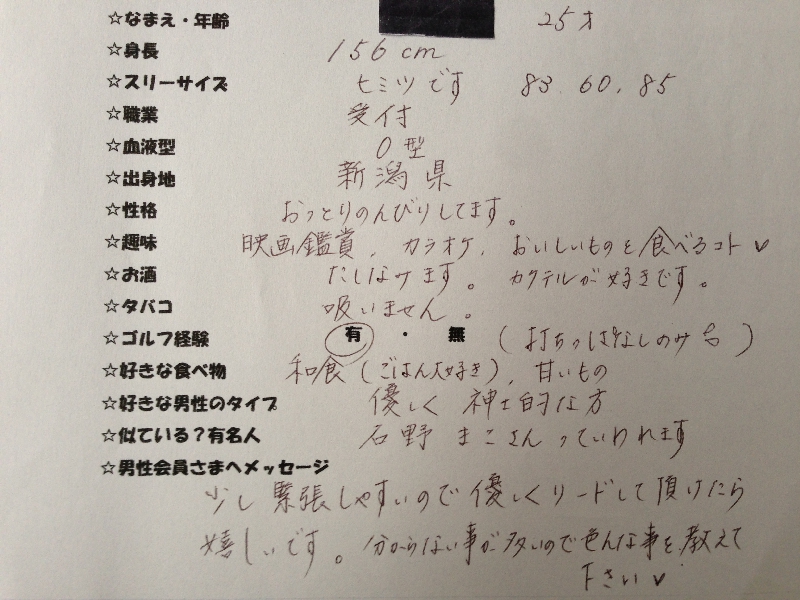 ☆なまえ・年齢 25才
☆身長 156cm
☆スリーサイズ ヒミツです 83.60.85
☆職業 受付
☆血液型 O型
☆出身地 新潟県
☆性格 おっとりのんびりしてます。
☆趣味 映画鑑賞、カラオケ、おいしいものを食べるコト♥
☆お酒 たしなみます。カクテルが好きです。
☆タバコ 吸いません。
☆ゴルフ経験 有・無 (打ちっぱなしのみ)
☆好きな食べ物 和食(ごはん大好き)、甘いもの
☆好きな男性のタイプ 優しく神士的な方
☆似ている?有名人 石野まこさんっていわれます
☆男性会員さまへメッセージ
少し緊張しやすいので優しくリードして頂けたら
嬉しいです。分からない事が多いので色んな事を教えて
下さい♥